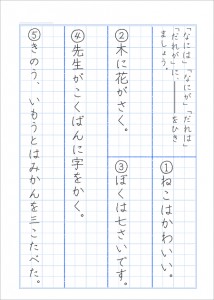 「なには」「なにが」「だれは」
「だれが」に、――――をひき
ましょう。
①ねこはかわいい。
②木に花がさく。
③ぼくは七さいです。
④先生がこくばんに字をかく。
⑤きのう、いもうとはみかんを三こたべた。